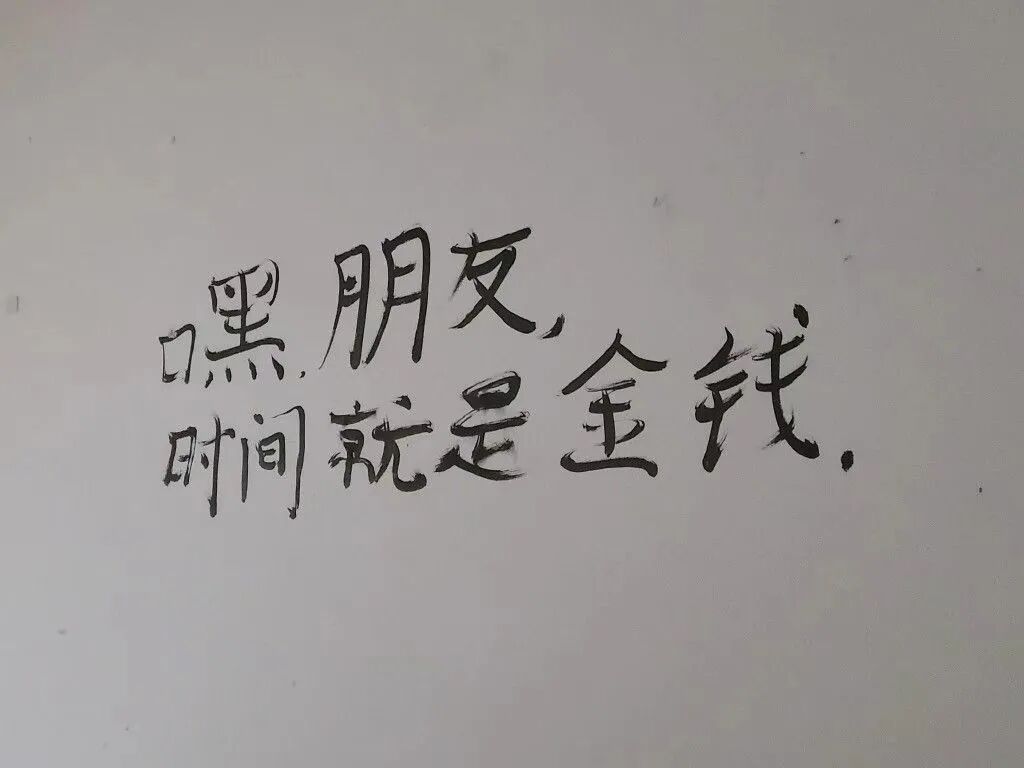 嘿.朋友,
时间就是金钱.